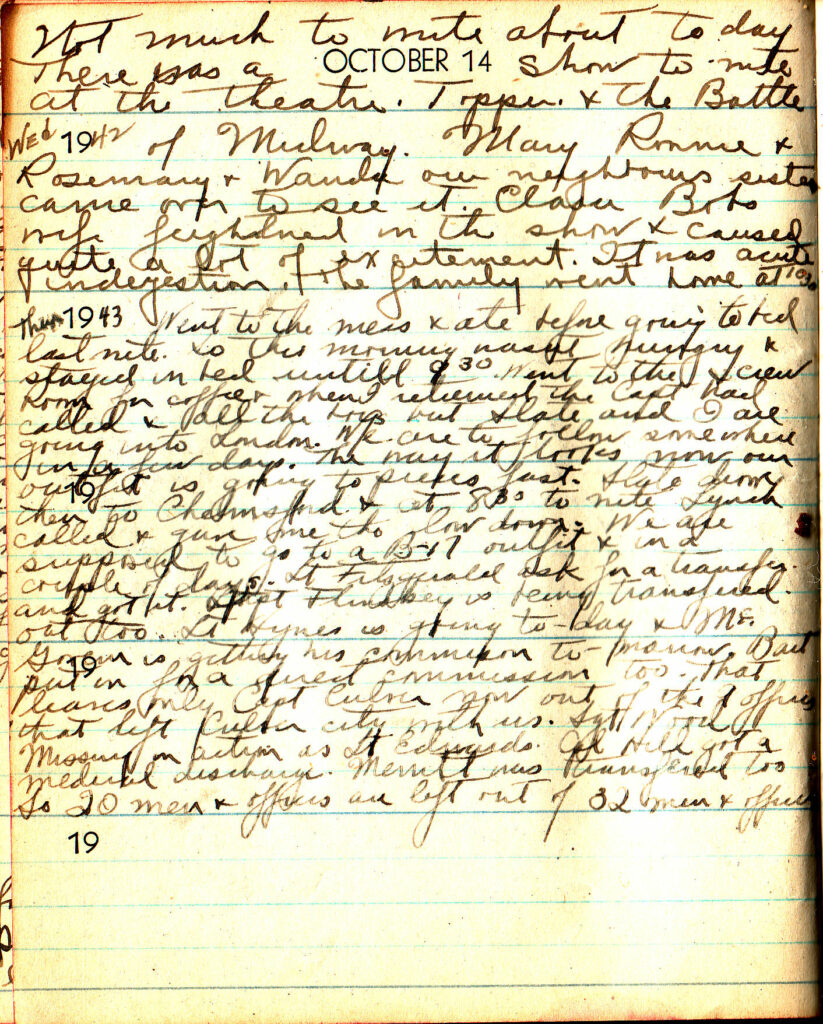 Not much to write about to day
There was a OCTOBER 14 show to-nite
at the theatre. Topper. & the Battle
Wed 1942 of Midway. Mary Ronnie &
Rosemary & Wanda our neighbours sister
came over to see it. Bobs
wife in the show & caused
quite a lot of excitement. It was acute
indegestion. The family went home at 10 30
Thur 1943 Went to the mess & ate before going to bed
last nite. So this morning wasnt hungry &
stayed in bed untill 9 30. Went to the crew
room for coffee & when I returned the Capt had
called & all the boys but Slate and I are
going into London. We are to follow somewhere
in a few days. The way it looks now our
outfit is going to pieces fast. Slate
19
then to Chelmsford & at 8 30 to nite Lynch
called & gave me the low down. We are
supposed to go to a B-17 outfit & in a
couple of days. Lt Fitzgerald ask for a transfer
and got it. is being transfered
out too. Lt Hynes is going to-day & Mc
is getting his commision to-morrow. Bait
19
put in for a direct commission too. That
leaves only Capt Culver now out of the 9 officers
that left Culver city with us. Sgt Wood
Missing in action as Lt Edwards. Hill got a
medical discharge. Merritt was transfered too
So 20 men & offics are left out of 32 men & offics
19